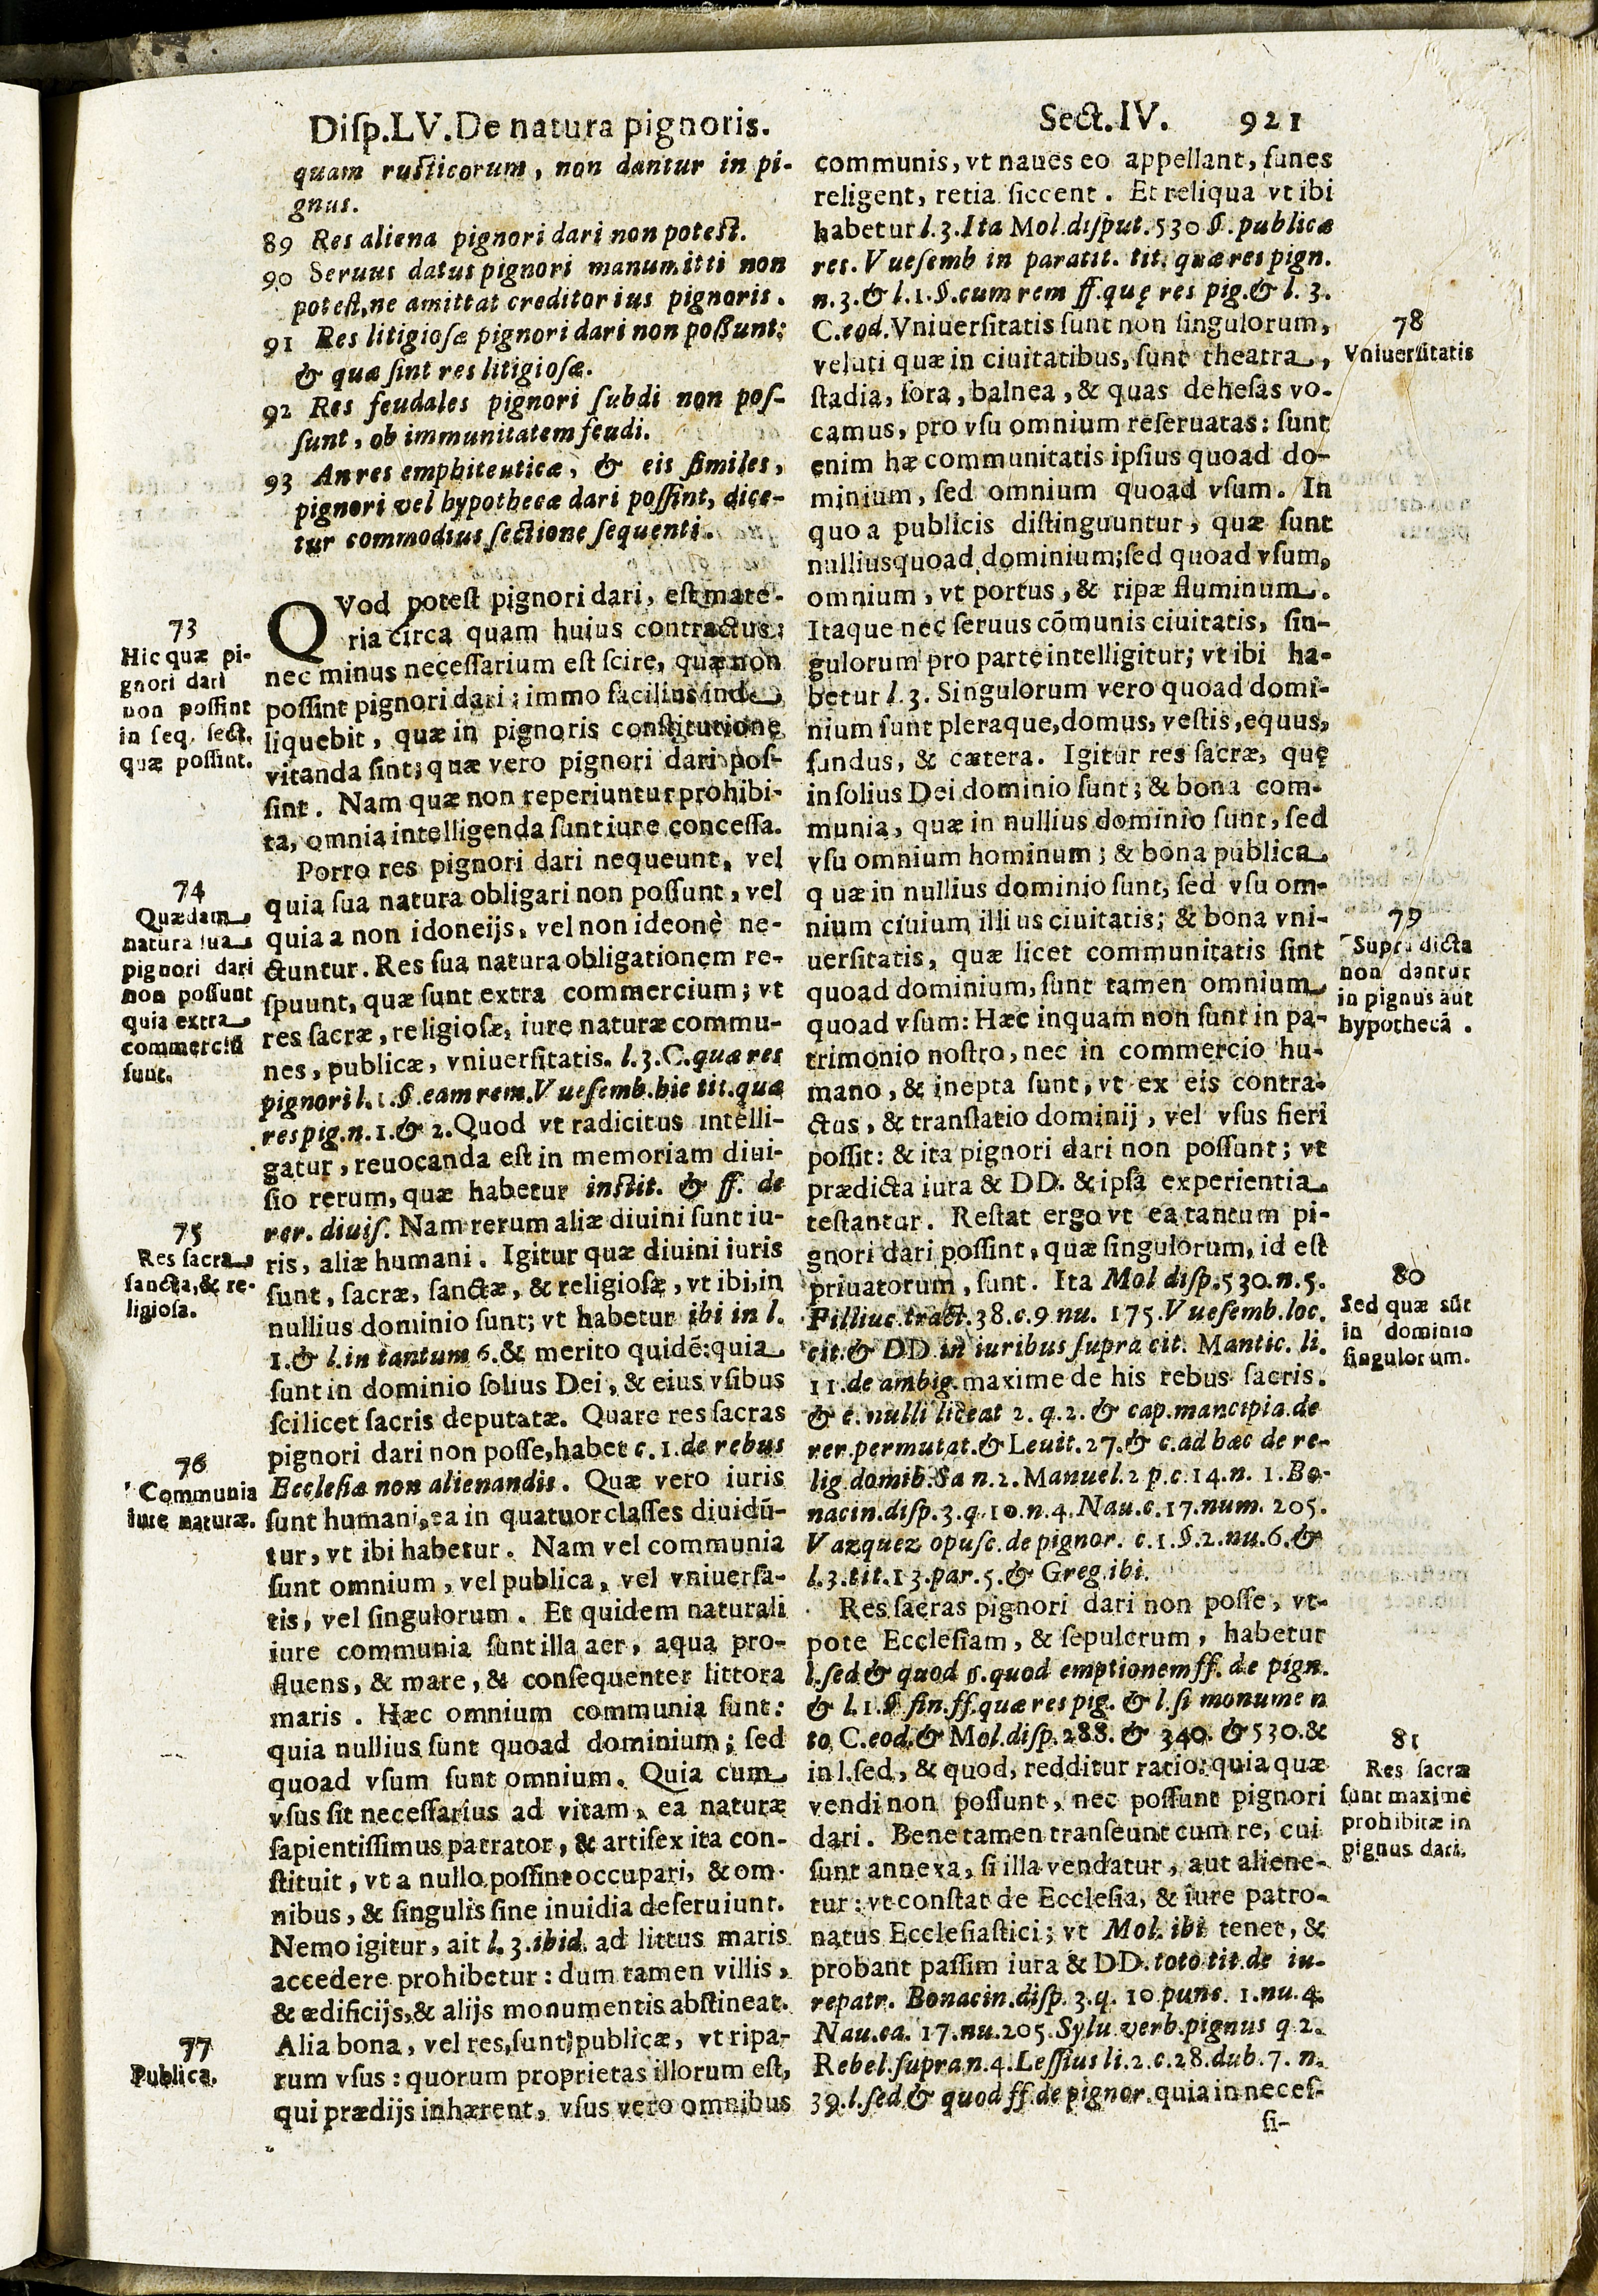 Disp.LV.De natura pignoris.
Sect.IV. 921
quam rusticorum, non dantur in pi-
gnus.
89 Res aliena pignori dari non potest.
90 Seruus datus pignori manumitti non
potest, ne amittat creditor ius pignoris.
91 Res litigiosæ pignori dari non possunt:
& quæ sint res litigiosæ.
92 Res feudales pignori subdi non pos-
sunt, ob immunitatem feudi.
93 An res emphiteuticæ, & eis similes,
pignori vel hypothecæ dari possint, dice-
tur commodius sectione sequenti.
73
Hic quæ pi-
gnori dari
non possint
in seq. sect.
quæ possint.
QVod potest pignori dari, est mate-
ria circa quam huius contractus;
nec minus necessarium est scire, quæ non
possint pignori dari; immo facilius inde
liquebit, quæ in pignoris constitutione
vitanda sint; quæ vero pignori dari pos-
sint. Nam quæ non reperiuntur prohibi-
ta, omnia intelligenda sunt iure concessa.
74
Quædam
natura sua
pignori dari
non possunt
quia extra
commerciũ
sunt.
Porro res pignori dari nequeunt, vel
quia sua natura obligari non possunt, vel
quia a non idoneijs, vel non ideonè ne-
ctuntur. Res sua natura obligationem re-
spuunt, quæ sunt extra commercium; vt
res sacræ, religiosæ, iure naturæ commu-
nes, publicæ, vniuersitatis. l.3.C.quæ res
pignori l.1.§.eam rem.Vuesemb.hic tit.quæ
res pig.n.1.& 2.Quod vt radicitus intelli-
gatur, reuocanda est in memoriam diui-
sio rerum, quæ habetur instit. & ff. de
rer. diuis. Nam rerum aliæ diuini sunt iu-
75
Res sacra
sancta, & re-
ligiosa.
ris, aliæ humani. Igitur quæ diuini iuris
sunt, sacræ, sanctæ, & religiosæ, vt ibi, in
nullius dominio sunt; vt habetur ibi in l.
1.& l.in tantum 6.& merito quidẽ: quia
sunt in dominio solius Dei, & eius vsibus
scilicet sacris deputatæ. Quare res sacras
pignori dari non posse, habet c.1.de rebus
76
Communia
iure naturæ.
Ecclesiæ non alienandis. Quæ vero iuris
sunt humani, ea in quatuor classes diuidũ-
tur, vt ibi habetur. Nam vel communia
sunt omnium, vel publica, vel vniuersa-
tis, vel singulorum. Et quidem naturali
iure communia sunt illa aer, aqua pro-
fluens, & mare, & consequenter littora
maris. Hæc omnium communia sunt:
quia nullius sunt quoad dominium; sed
quoad vsum sunt omnium. Quia cum
vsus sit necessarius ad vitam, ea naturæ
sapientissimus patrator, & artifex ita con-
stituit, vt a nullo possint occupari, & om-
nibus, & singulis sine inuidia deseruiunt.
Nemo igitur, ait l. 3.ibid. ad littus maris
accedere prohibetur: dum tamen villis,
& ædificijs, & alijs monumentis abstineat.
77
Publica.
Alia bona, vel res, sunt publicæ, vt ripa-
rum vsus: quorum proprietas illorum est,
qui prædijs inhærent, vsus vero omnibus
communis, vt naues eo appellant, funes
religent, retia siccent. Et reliqua vt ibi
habetur l.3.Ita Mol.disput.530 §.publicæ
res. Vuesemb in paratit. tit. quæ res pign.
n.3.& l.1.§.cum rem ff.quę res pig.& l. 3.
78
Vniuersitatis
C.eod.Vniuersitatis sunt non singulorum,
veluti quæ in ciuitatibus, sunt theatra,
stadia, fora, balnea, & quas dehesas vo-
camus, pro vsu omnium reseruatas: sunt
enim hæ communitatis ipsius quoad do-
minium, sed omnium quoad vsum. In
quo a publicis distinguuntur, quæ sunt
nullius quoad dominium; sed quoad vsum,
omnium, vt portus, & ripæ fluminum.
Itaque nec seruus cõmunis ciuitatis, sin-
gulorum pro parte intelligitur; vt ibi ha-
betur l.3. Singulorum vero quoad domi-
nium sunt pleraque, domus, vestis, equus,
fundus, & cætera. Igitur res sacræ, quę
in solius Dei dominio sunt; & bona com-
munia, quæ in nullius dominio sunt, sed
vsu omnium hominum; & bona publica
quæ in nullius dominio sunt, sed vsu om-
79
Supradicta
non dantur
in pignus aut
hypothecã.
nium ciuium illius ciuitatis; & bona vni-
uersitatis, quæ licet communitatis sint
quoad dominium, sunt tamen omnium
quoad vsum: Hæc inquam non sunt in pa-
trimonio nostro, nec in commercio hu-
mano, & inepta sunt, vt ex eis contra-
ctus, & translatio dominij, vel vsus fieri
possit: & ita pignori dari non possunt; vt
prædicta iura & DD. & ipsa experientia
testantur. Restat ergo vt ea tantum pi-
gnori dari possint, quæ singulorum, id est
80
Sed quæ sũt
in dominio
singulorum.
priuatorum, sunt. Ita Mol disp.530.n.5.
Filliuc.tract.38.c.9 nu. 175.Vuesemb.loc.
cit.& DD.in iuribus supra cit. Mantic. li.
11.de ambig.maxime de his rebus sacris.
& c. nulli liceat 2. q.2. & cap.mancipia.de
rer.permutat.& Leuit.27.& c.ad hæc de re-
lig.domib.Sa n.2.Manuel.2 p.c.14.n. 1.Bo-
nacin.disp.3.q.10.n.4.Nau.c.17.num. 205.
Vazquez opusc.de pignor. c.1.§.2.nu.6.&
l.3.tit.13.par.5.& Greg.ibi.
Res sacras pignori dari non posse, vt-
pote Ecclesiam, & sepulcrum, habetur
l.sed & quod §.quod emptionem ff. de pign.
& l.1.§ fin.ff.quæ res pig. & l.si monumen
to C.eod.& Mol.disp.288. & 340. & 530.&
81
Res sacræ
sunt maxime
prohibitæ in
pignus dari.
in l.sed, & quod, redditur ratio: quia quæ
vendi non possunt, nec possunt pignori
dari. Bene tamen transeunt cum re, cui
sunt annexa, si illa vendatur, aut aliene-
tur: vt constat de Ecclesia, & iure patro-
natus Ecclesiastici; vt Mol. ibi tenet, &
probant passim iura & DD.toto tit.de iu-
repatr. Bonacin.disp. 3.q. 10 punc. 1.nu.4.
Nau.ca. 17.nu.205.Sylu.verb.pignus q 2.
Rebel.supra n.4.Lessius li.2.c.28.dub.7. n.
39.l.sed & quod ff.de pignor.quia in neces-
si-